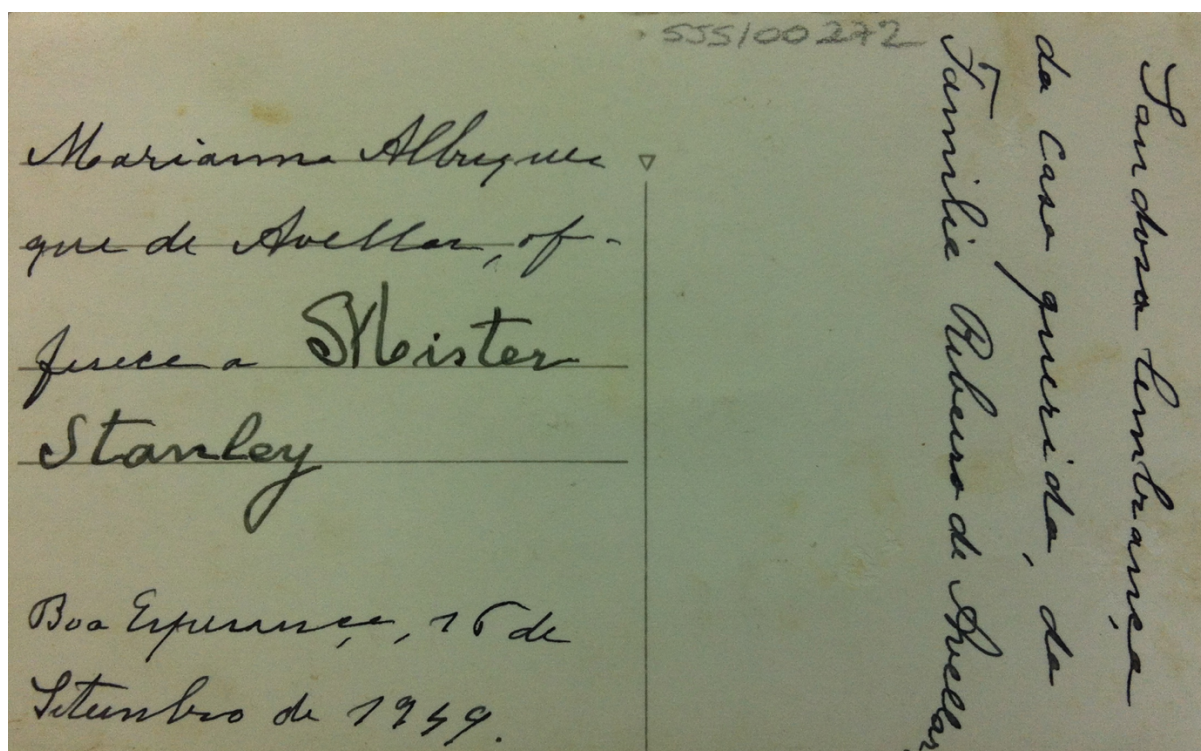 555/00272
Marianna Albuquer
que de Avellar, of-
ferece a Mister
Stanley
Boa Esperança, 16 de
Setembro de 1949.
Saudosa lembrança
da casa querida, da
Familia Ribeiro de Avellar